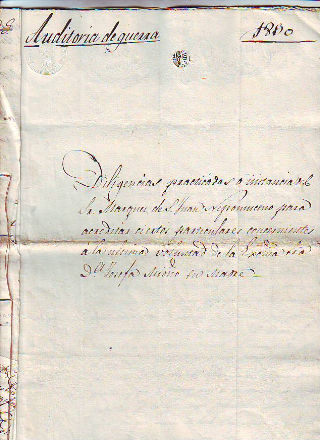 Auditoria de guerra
1810
Diligencias practicadas a instancia de
la Marques de S. Juan Nepomuceno para
acreditar ciertos particulares concernientes
a la ultima voluntad de la
D.ª Josefa su Madre